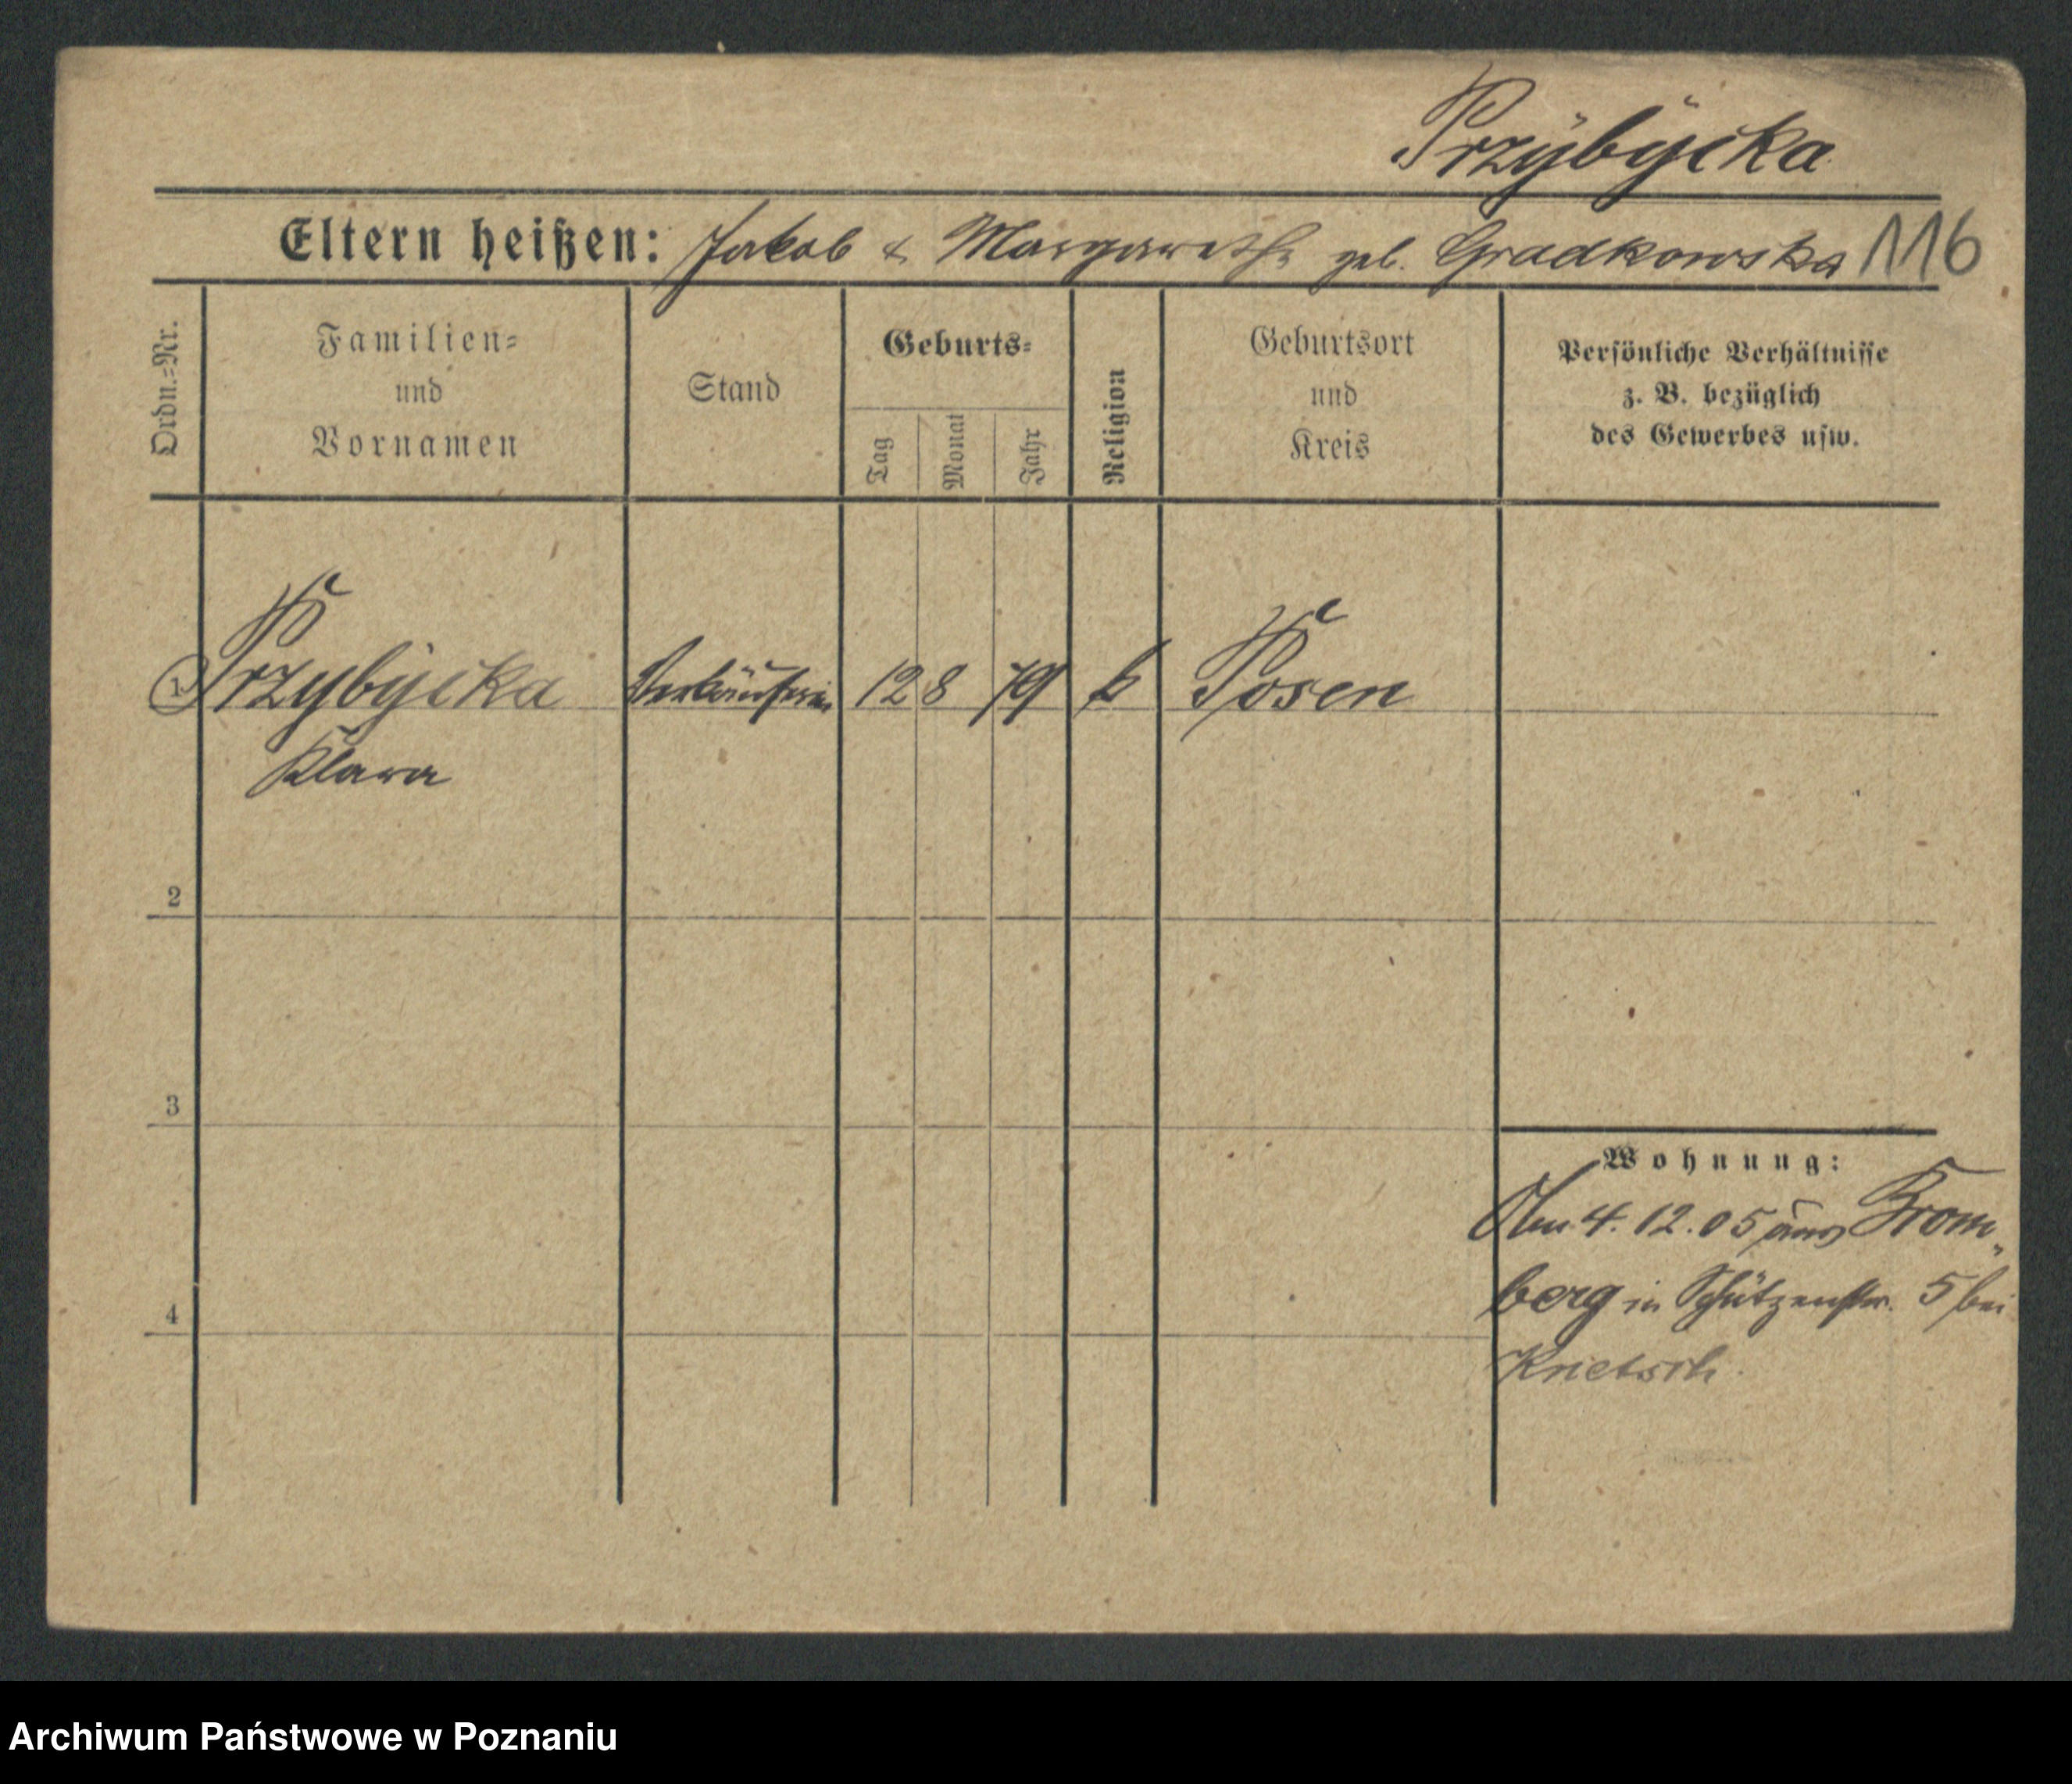 Przÿbÿcka
Eltern heißen: Jakob & Margarethe geb. Gradkowska 116
Ordn.=Nr.
Familien=
und
Vornamen
Stand
Geburts=
Tag
Monat
Jahr
Religion
Geburtsort
und
Kreis
Persönliche Verhältnisse
z. B. bezüglich
des Gewerbes usw.
1 Przybÿcka Verkäuferin 12 8 79 k Posen
Klara
2
3
4
Wohnung:
Am 4. 12. 05 aus Brom„
berg in Schützenstr. 5 bei
Krietsch.
Archiwum Państwowe w Poznaniu